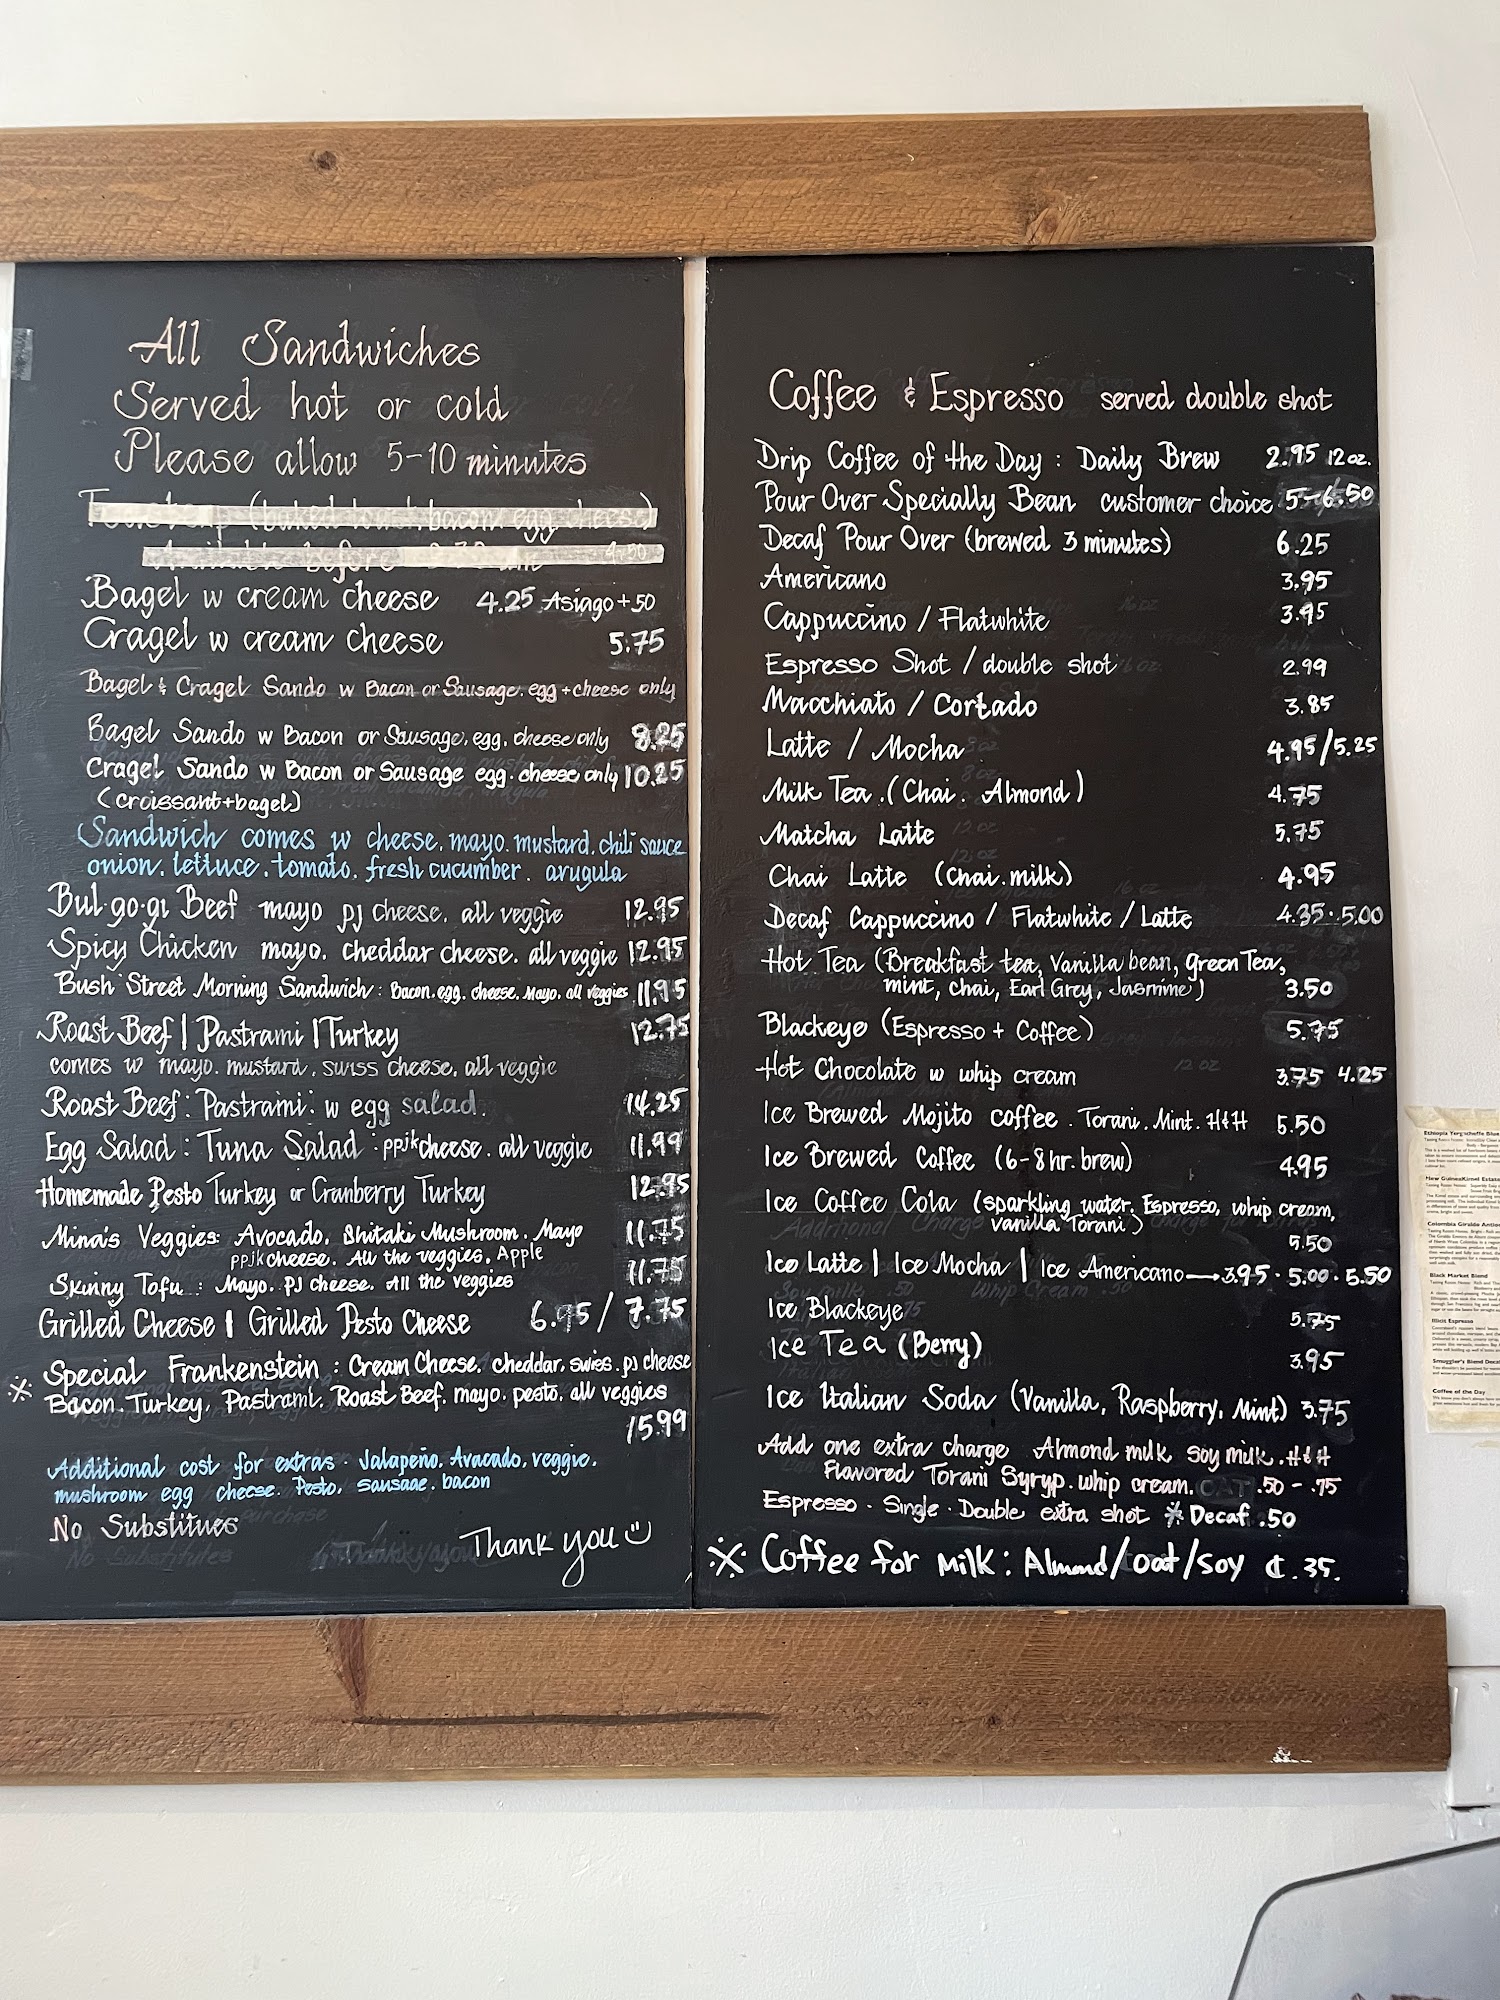 All Sandwiches
Served hot or cold
Please allow 5-10 minutes
(baked bacon egg cheese)
before 4.50
Bagel w cream cheese 4.25 Asiago +50
Cragel w cream cheese 5.75
Bagel & Cragel Sando w Bacon or Sausage. egg + cheese only
Bagel Sando w Bacon or Sausage, egg, cheese only 8.25
Cragel Sando w Bacon or Sausage egg. cheese only 10.25
(croissant+bagel)
Sandwich comes w cheese, mayo. mustard, chili sauce
onion. lettuce. tomato. fresh cucumber. arugula
Bul·go·gi Beef mayo pj cheese. all veggie 12.95
Spicy Chicken mayo. cheddar cheese. all veggie 12.95
Bush Street Morning Sandwich : Bacon. egg. cheese. Mayo. all veggies 11.95
Roast Beef | Pastrami | Turkey 12.75
comes w mayo. mustard. swiss cheese, all veggie
Roast Beef : Pastrami : w egg salad. 14.25
Egg Salad : Tuna Salad : ppjk cheese. all veggie 11.99
Homemade Pesto Turkey or Cranberry Turkey 12.95
Mina's Veggies: Avocado. Shitaki Mushroom. Mayo 11.75
ppjk cheese. All the veggies, Apple
Skinny Tofu : Mayo. PJ cheese. All the veggies 11.75
Grilled Cheese | Grilled Pesto Cheese 6.95 / 7.75
※ Special Frankenstein : Cream Cheese, cheddar, swiss. pj cheese
Bacon. Turkey, Pastrami. Roast Beef. mayo. pesto. all veggies
15.99
Additional cost for extras · Jalapeño. Avacado, veggie.
mushroom egg cheese. Pesto. sausage. bacon
No Substitues
Thank you
Coffee & Espresso served double shot
Drip Coffee of the Day : Daily Brew 2.95 12oz.
Pour Over Specially Bean customer choice 5-6.50
Decaf Pour Over (brewed 3 minutes) 6.25
Americano 3.95
Cappuccino / Flatwhite 3.95
Espresso Shot / double shot 2.99
Macchiato / Cortado 3.85
Latte / Mocha 4.95/5.25
Milk Tea. (Chai. Almond) 4.75
Matcha Latte 5.75
Chai Latte (Chai. milk) 4.95
Decaf Cappuccino / Flatwhite / Latte 4.35·5.00
Hot Tea (Breakfast tea, Vanilla bean, green Tea,
mint, chai, Earl Grey, Jasmine) 3.50
Blackeye (Espresso + Coffee) 5.75
Hot Chocolate w whip cream 3.75 4.25
Ice Brewed Mojito coffee. Torani. Mint. H&H 5.50
Ice Brewed Coffee (6-8hr. brew) 4.95
Ice Coffee Cola (sparkling water. Espresso, whip cream,
vanilla Torani) 5.50
Ice Latte | Ice Mocha | Ice Americano → 3.95 · 5.00 · 5.50
Ice Blackeye 5.75
Ice Tea (Berry) 3.95
Ice Italian Soda (Vanilla, Raspberry, Mint) 3.75
Add one extra charge Almond milk soy milk. H&H
Flavored Torani Syryp. whip cream. OAT .50 - .75
Espresso · Single · Double extra shot ※ Decaf .50
※ Coffee for Milk : Almond/oat/soy ¢.35.
Colombia Giraldo
Black Market Blend
Illicit Espresso
Coffee of the Day